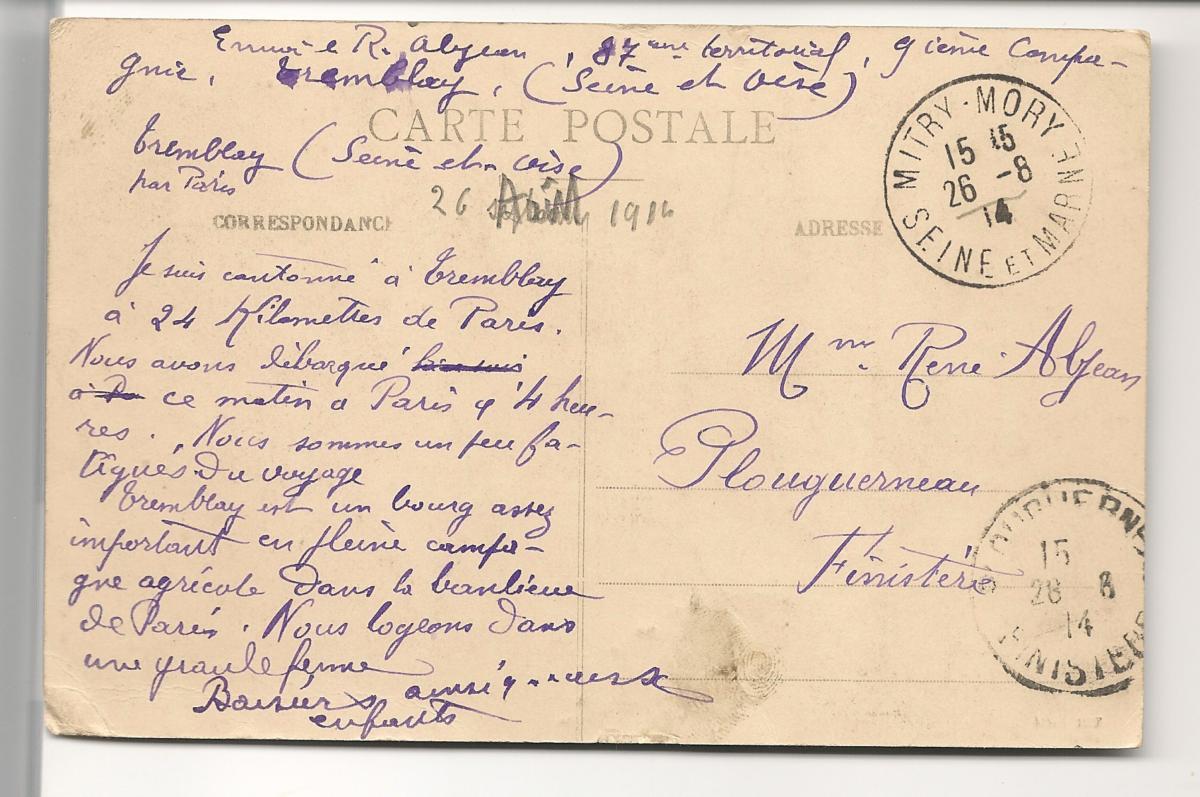 Envoi de R. Abjean, 87eme territorial, 9ième Compa-
gnie, Tremblay, (Seine et Oise)
CARTE POSTALE
Tremblay (Seine et Oise)
par Paris
26 Août 1914
CORRESPONDANCE
ADRESSE
MITRY-MORY
15 15
26 -8
14
SEINE ET MARNE
Je suis cantonné à Tremblay
à 24 Kilomettes de Paris.
Nous avons débarqué
à ce matin a Paris a 4 heu-
res. Nous sommes un peu fa-
tigués du voyage
Tremblay est un bourg assez
important en pleine campa-
gne agricole dans la banlieue
de Paris. Nous logeons dans
une grande ferme
Baisers ainsi qu'aux
enfants
Mme René Abjean
Plouguerneau
Finistère
PLOUGUERNEAU
15
28 8
14
FINISTERE